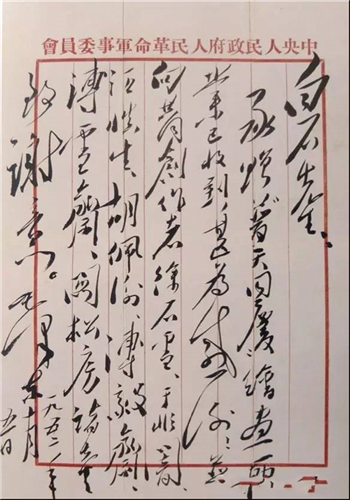 中央人民政府人民革命軍事委員會
白石先生、
承贈普天同慶繪畫一軸、
業已收到、甚为感謝、並
向共同創作者徐石雪、于非闇、
汪慎生、胡佩衡、溥毅齋、
溥雪齋、關松房諸先生
致謝意。毛澤东
一九五二年
十月五日